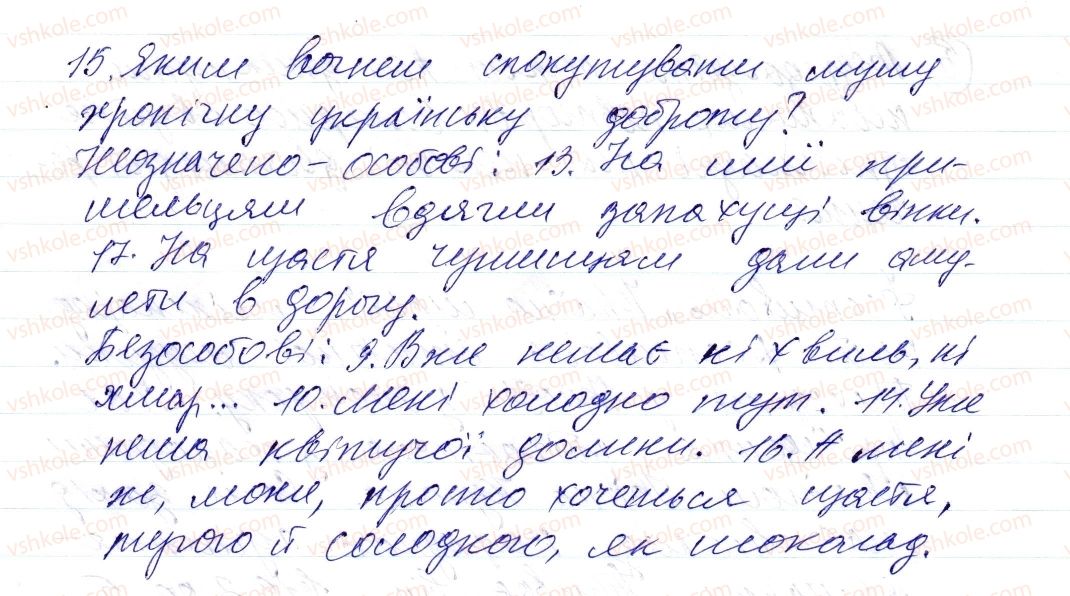 15. Яким вогнем спокутувати мушу
хронічну українську доброту?
Неозначено-особові: 13. На шиї при-
шельцям вдягли запахущі вінки.
17. На щастя чужинцям дали аму-
лети в дорогу.
Безособові: 9. Вже немає ні хвиль, ні
хмар... 10. Мені холодно тут. 14. Уже
нема квітучої долини. 16. А мені
ж, може, просто хочеться щастя,
тугого й солодкого, як шоколад.